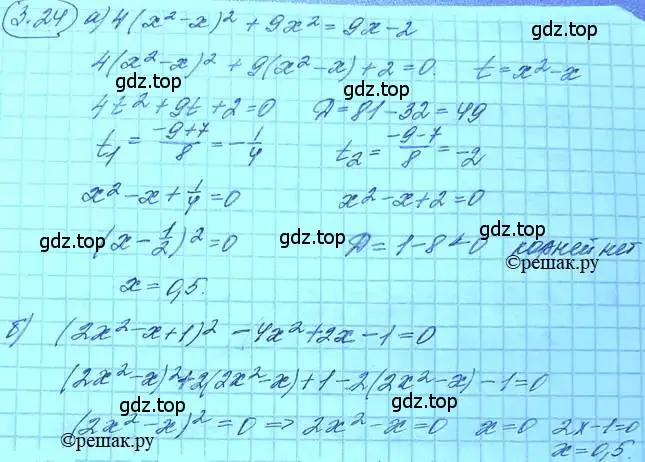 3.24 а) 4(x² - x)² + 9x² = 9x - 2
gdz.top
4(x² - x)² + 9(x² - x) + 2 = 0. t = x² - x
gdz.top gdz.top
4t² + 9t + 2 = 0 D = 81 - 32 = 49
t₁ = (-9+7)/8 = -1/4 t₂ = (-9-7)/8 = -2
gdz.top
x² - x + 1/4 = 0 x² - x + 2 = 0
gdz.top gdz.top gdz.top
(x - 1/2)² = 0 D = 1 - 8 < 0 корней нет
©решак.ру
x = 0,5.
gdz.top
б) (2x² - x + 1)² - 4x² + 2x - 1 = 0
gdz.top
(2x² - x)² + 2(2x² - x) + 1 - 2(2x² - x) - 1 = 0
gdz.top gdz.top
(2x² - x)² = 0 => 2x² - x = 0 x = 0 2x - 1 = 0
©решак.ру ©решак.ру
x = 0,5.